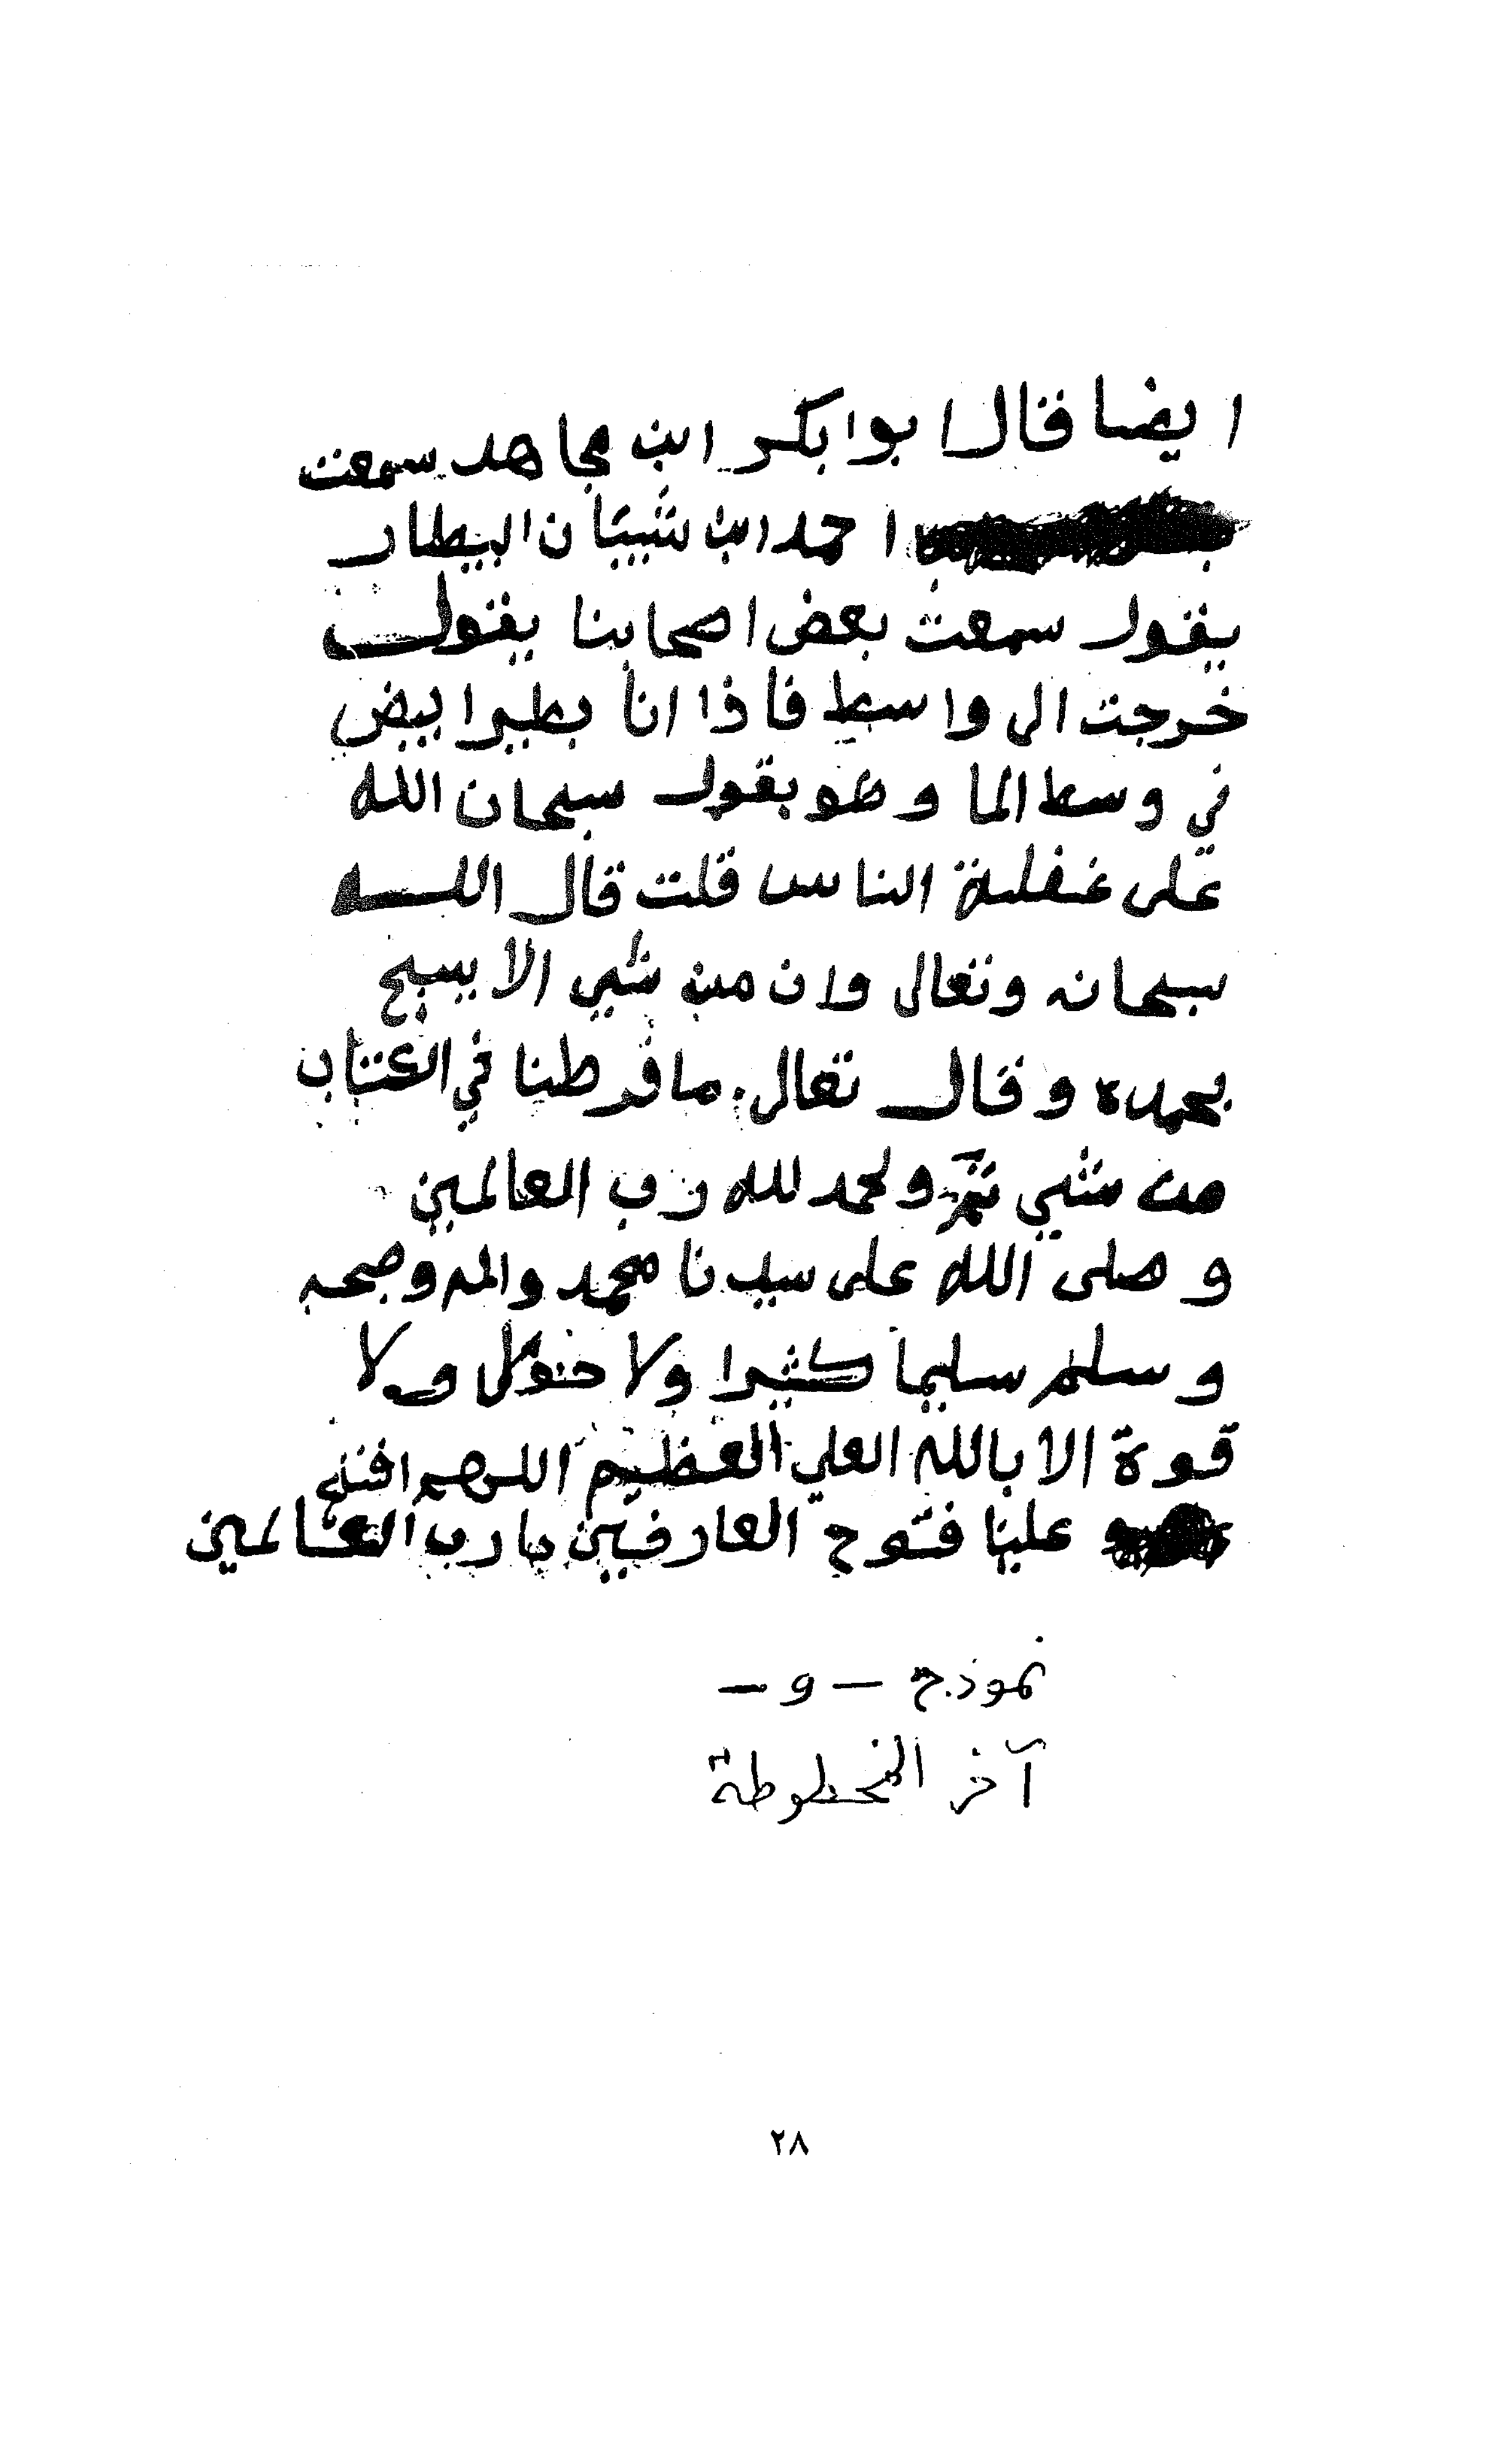 ايضا قال ابوا بكر ابن مجاهد سمعت
احمد ابن شيبان البيطار
يقول سمعت بعض اصحابنا يقول
خرجت الى واسط فاذا انا بطير ابيض
في وسط الما وهو يقول سبحان الله
على غفلة الناس قلت قال الله
سبحانه وتعالى وان من شي الا يسبح
بحمده وقال تعالى ما فرطنا في الكتاب
من شي تم ولحمد لله رب العالمين
وصلى الله على سيدنا محمد واله وصحبه
وسلم سليما كثيرا ولا حول ولا
قوة الا بالله العلي العظيم اللهم افتح
علينا فتوح العارفين يا رب العالمين
نموذج - و -
آخر المخطوطة
٢٨